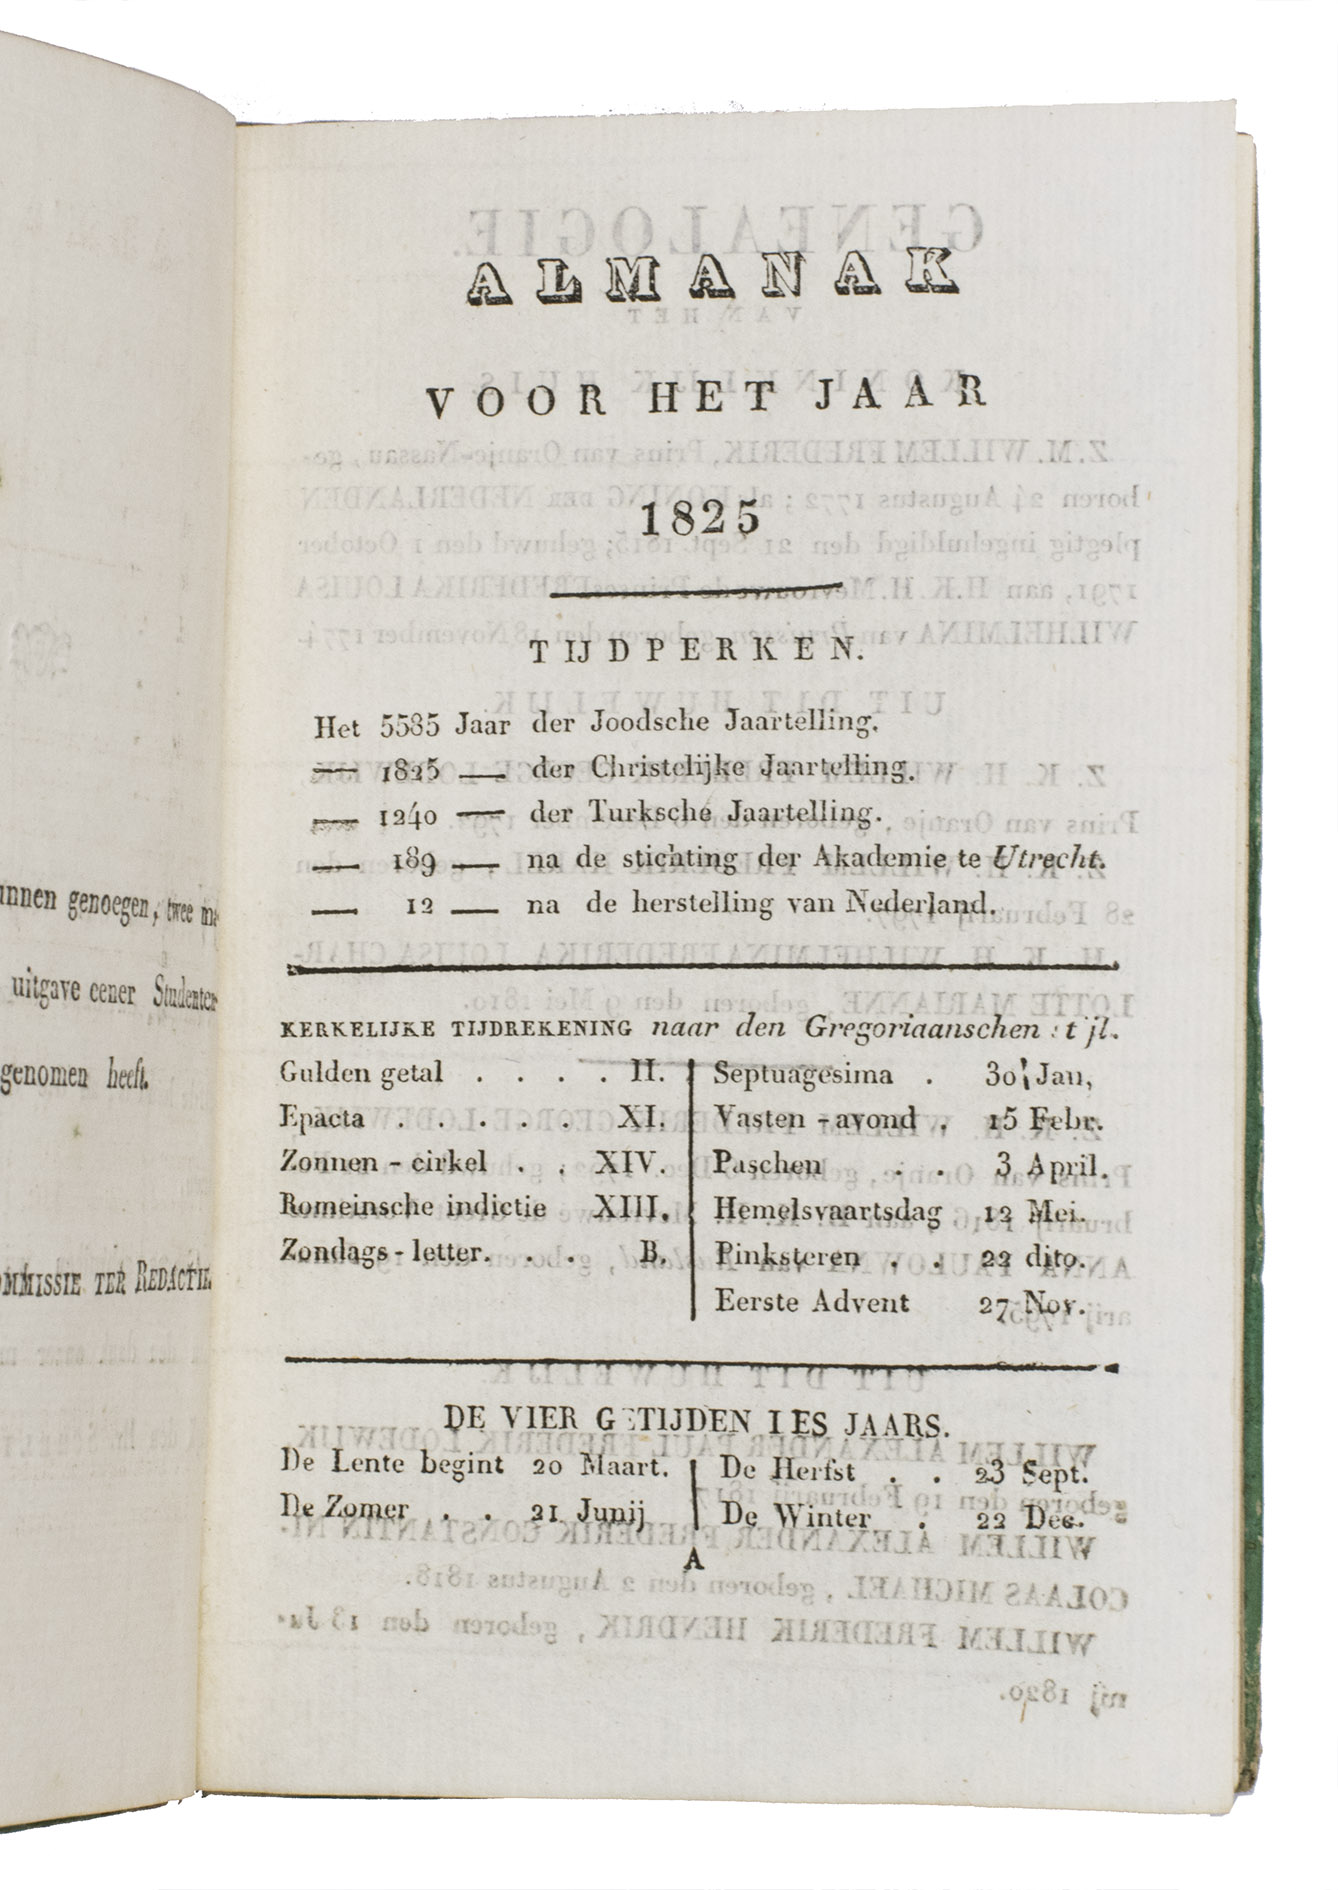 unnen genoegen, twee
uitgave eener Studenten
genomen heeft.
COMMISSIE TER REDACTIE.
ALMANAK
VOOR HET JAAR
1825
TIJDPERKEN.
Het 5585 Jaar der Joodsche Jaartelling.
— 1825 — der Christelijke Jaartelling.
— 1240 — der Turksche Jaartelling.
— 189 — na de stichting der Akademie te Utrecht.
— 12 — na de herstelling van Nederland.
KERKELIJKE TIJDREKENING naar den Gregoriaanschen stijl.
Gulden getal . . . . II.
Epacta . . . . . XI.
Zonnen-cirkel . . XIV.
Romeinsche indictie XIII.
Zondags-letter. . . B.
Septuagesima . 30 Jan.
Vasten-avond . 15 Febr.
Paschen . . 3 April.
Hemelsvaartsdag 12 Mei.
Pinksteren . . 22 dito.
Eerste Advent 27 Nov.
DE VIER GETIJDEN DES JAARS.
De Lente begint 20 Maart.
De Zomer . . 21 Junij
De Herfst . . 23 Sept.
De Winter . 22 Dec.
A